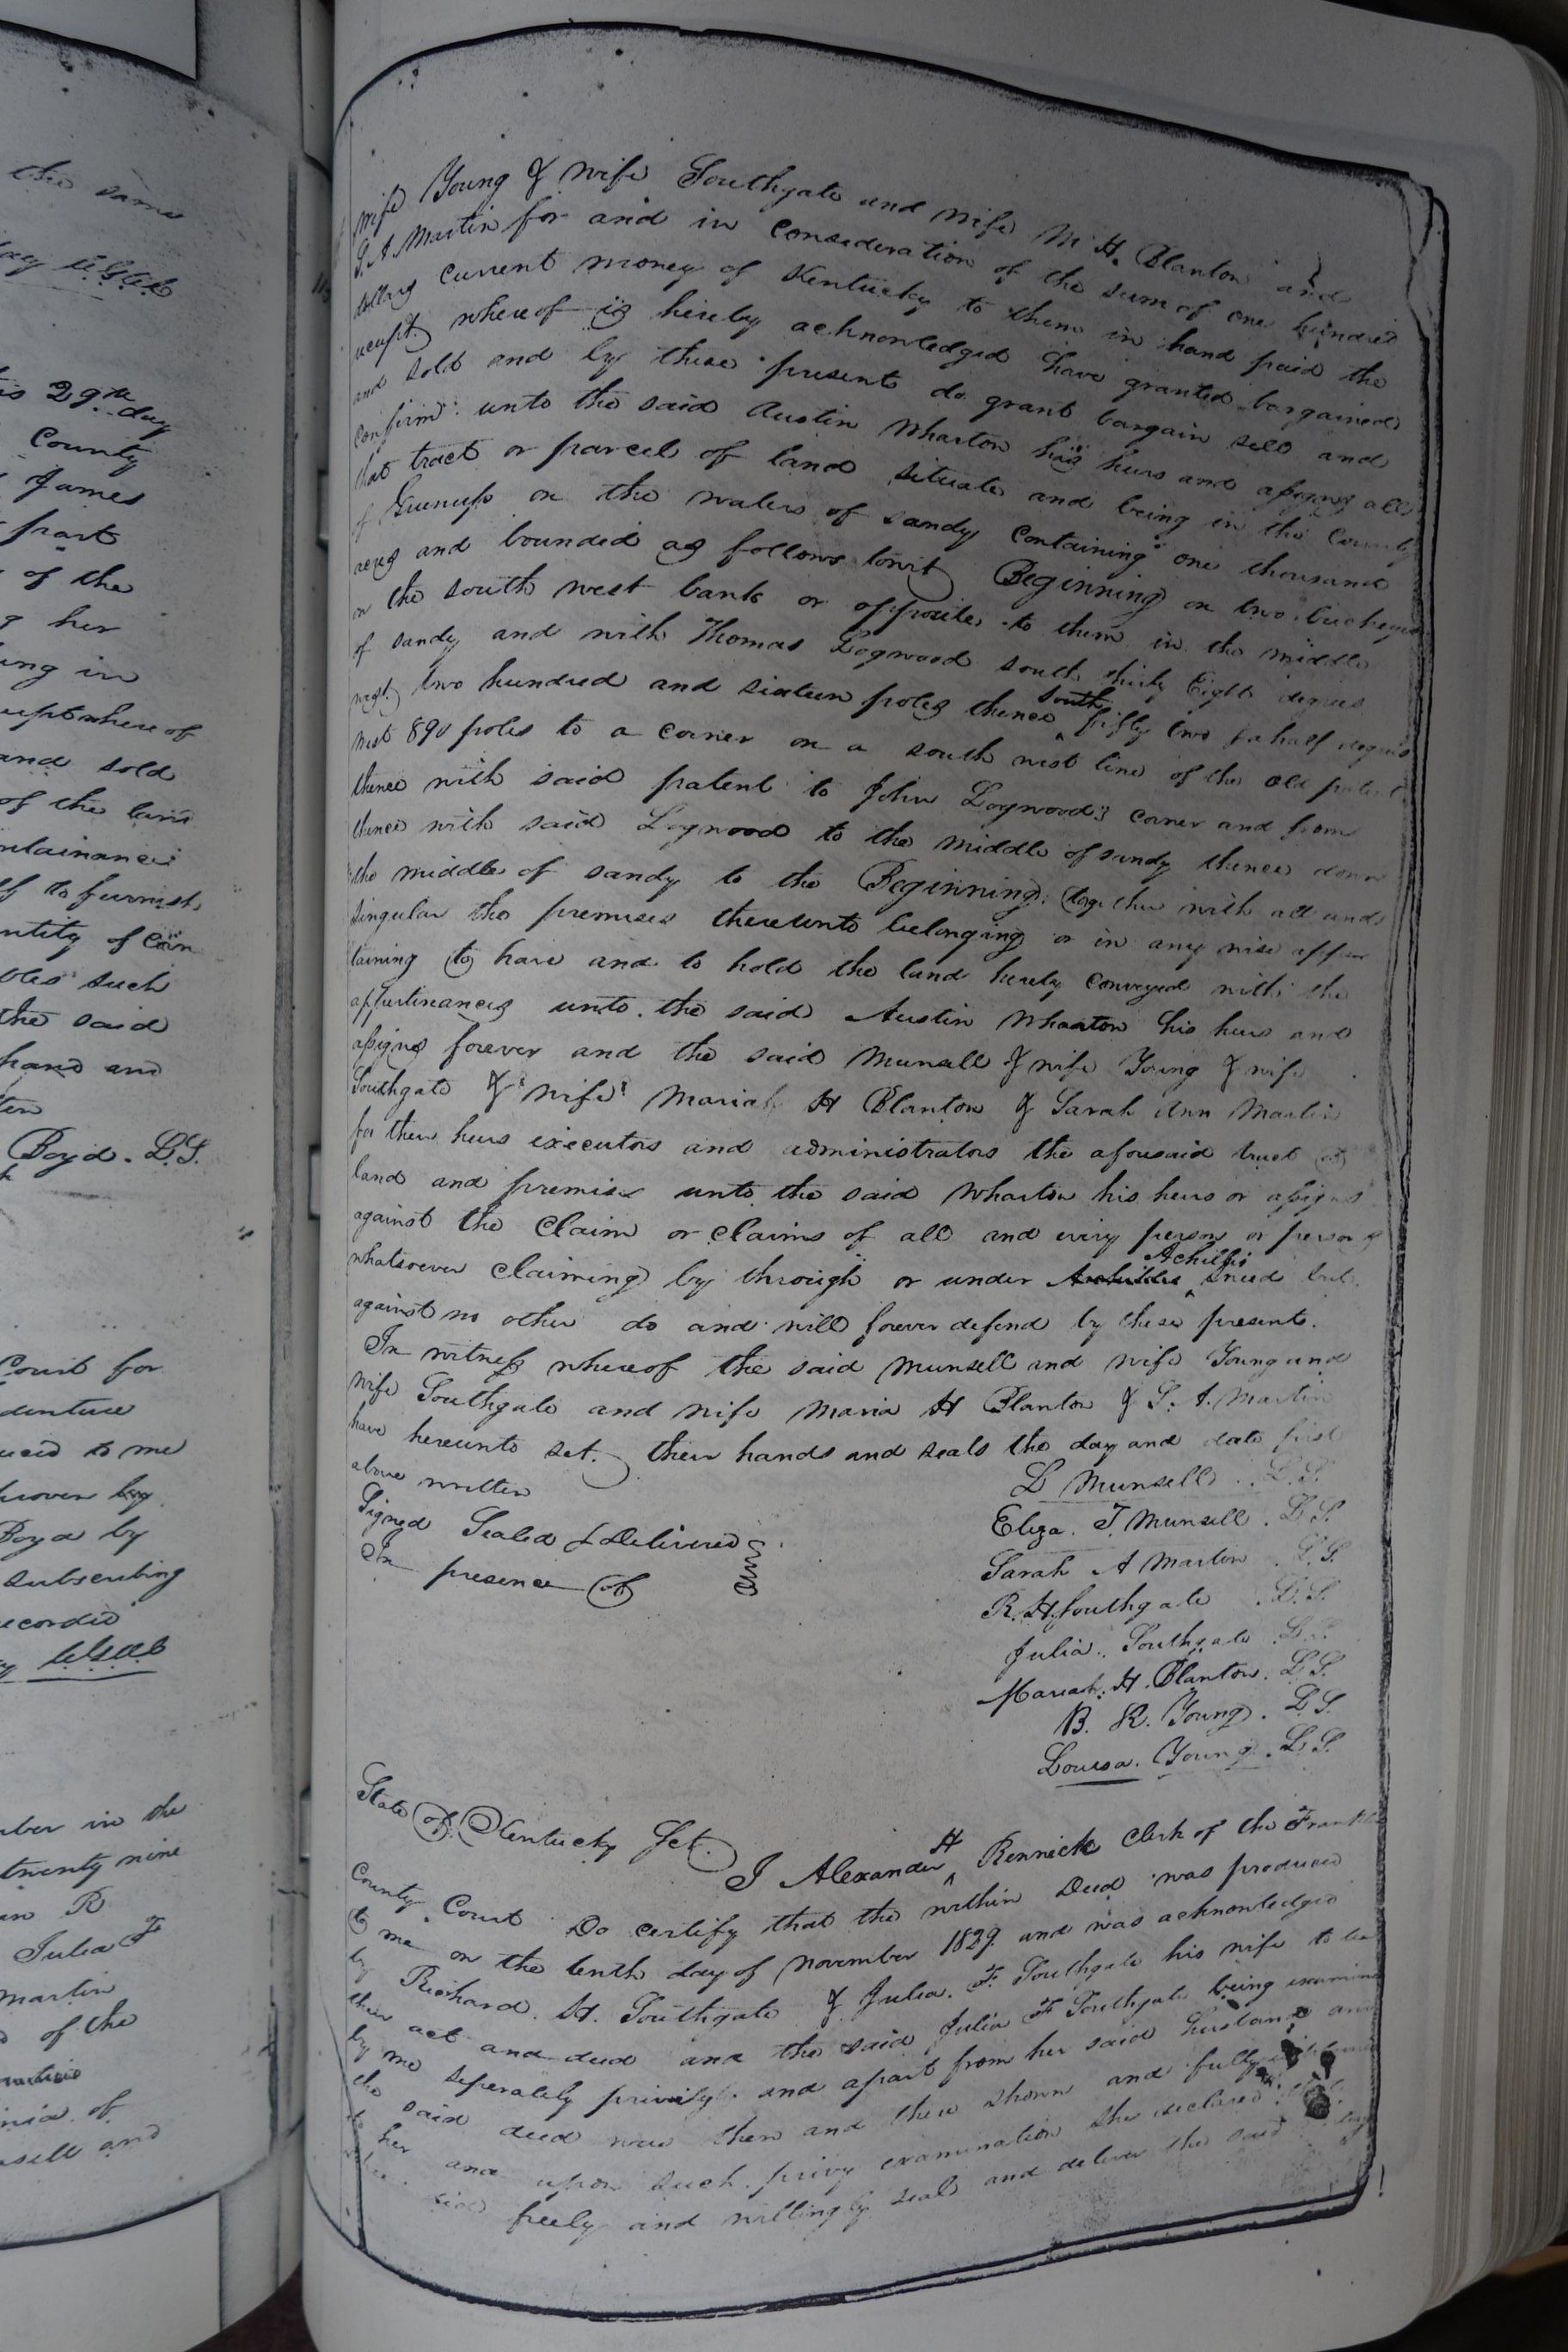 the same
is 29th day
County
James
part
of the
her
ing in
where of
and sold
of the
to furnish
ntity of
such
the said
hand and
Boyd. L.S.
Court for
denture
to me
by
Boyd by
subscribing
recorded
ber in the
twenty nine
R
Julia F
Martin
of the
of
sell and
wife Young & wife Southgate and wife M. H. Blanton and
S. A Martin for and in consideration of the sum of one hundred
dollars current money of Kentucky to them in hand paid the
receipt whereof is hereby acknowledged have granted bargained
and sold and by these present do grant bargain sell and
confirm unto the said Austin Wharton his heirs and assigns all
that tract or parcel of land situate and being in the County
of Greenup on the waters of sandy containing one thousand
acres and bounded as follows towit Beginning on two buckeyes
on the south west bank or opposite to them in the middle
of sandy and with Thomas Logwood south thirty Eight degrees
west two hundred and sixteen poles thence south fifty two & a half degrees
west 890 poles to a corner on a south west line of the old patent
thence with said patent to John Logwood's corner and from
thence with said Logwood to the middle of sandy thence down
the middle of sandy to the Beginning: together with all and
singular the premises thereunto belonging or in any wise apper
taining to have and to hold the land hereby conveyed with the
appurtinances unto the said Austin Wharton his heirs and
assigns forever and the said Munsell & wife Young & wife
Southgate & wife Mariah H Blanton & Sarah Ann Martin
for their heirs executors and administrators the aforesaid tract of
land and premises unto the said Wharton his heirs or assigns
against the Claim or claims of all and every person or persons
whatsoever claiming by through or under Achilles Sneed but
against no other do and will forever defend by these present.
In witness whereof the said Munsell and wife Young and
wife Southgate and wife Maria H Blanton & S. A. Martin
have hereunto set their hands and seals the day and date first
above written
Signed Sealed & Delivered
In presence of
L Munsell L.S.
Eliza. T. Munsell. L.S.
Sarah A Martin. L.S.
R. H. Southgate. L.S.
Julia. Southgate L.S.
Mariah. H. Blanton. L.S.
B. R. Young. L.S.
Louisa. Young. L.S.
State of Kentucky Sct.
I Alexander H Rennick Clerk of the Franklin
County Court Do certify that the within Deed was produced
to me on the tenth day of November 1829 and was acknowledged
by Richard. H. Southgate & Julia. F. Southgate his wife to be
their act and deed and the said Julia F Southgate being examined
by me seperately privily and apart from her said husband and
the said deed was then and there shown and fully
to her and upon such privy examination she declared
did freely and willingly seal and deliver the said